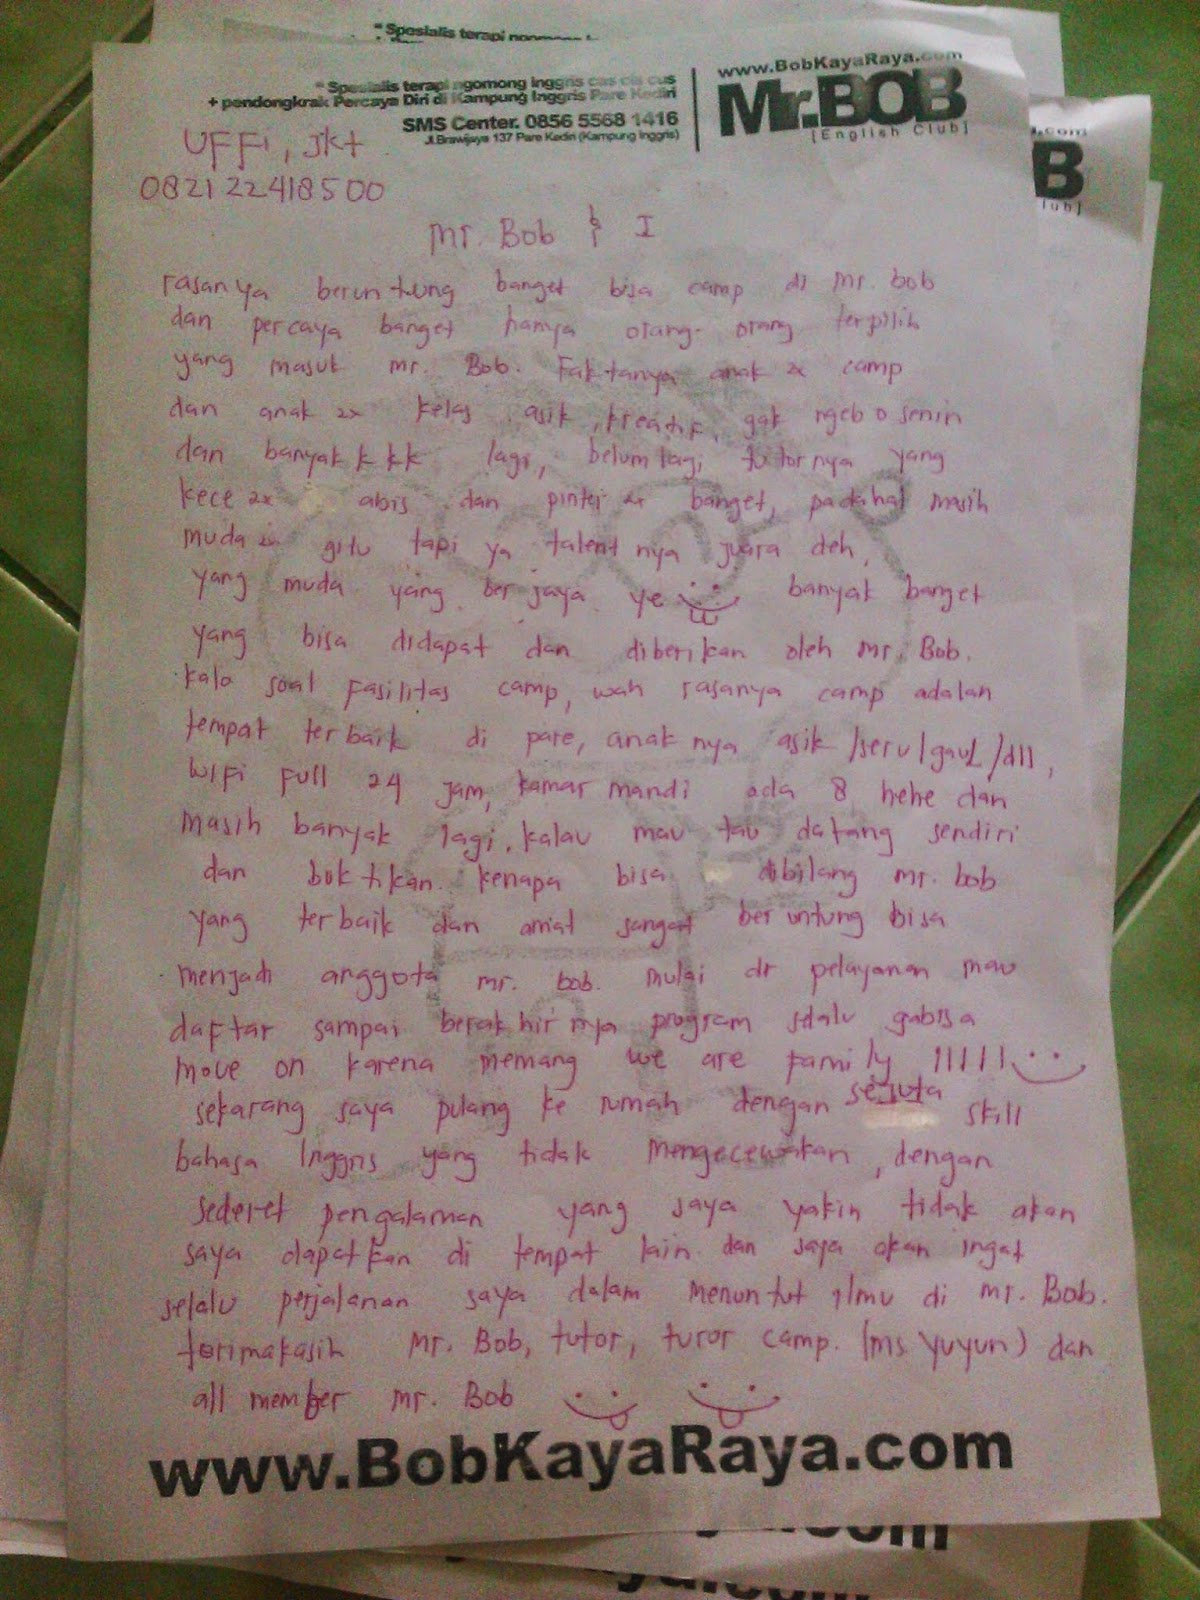 " Spesialis terapi ngomong
www.BobKayaRaya.com
" Spesialis terapi ngomong Inggris cas cis cus
+ pendongkrak Percaya Diri di Kampung Inggris Pare Kediri
Mr.BOB
SMS Center. 0856 5568 1416
[English Club]
Jl.Brawijaya 137 Pare Kediri (Kampung Inggris)
.com
B
lub]
UFFi, Jkt
082122418500
Mr. Bob & I
rasanya beruntung banget bisa camp di Mr. bob
dan percaya banget hanya orang-orang terpilih
yang masuk mr. Bob. Faktanya anak2x camp
dan anak2x kelas asik, kreatif, gak ngebosenin
dan banyakkkk lagi, belum lagi tutornya yang
kece2x abis dan pinter2x banget, padahal masih
muda2x gitu tapi ya talentnya juara deh,
yang muda yang berjaya ye banyak banget
yang bisa didapat dan diberikan oleh Mr. Bob.
kalo soal fasilitas camp, wah rasanya camp adalah
tempat terbaik di pare, anaknya asik /seru/gaul/dll,
Wifi Full 24 jam, kamar mandi ada 8 hehe dan
masih banyak lagi. kalau mau tau datang sendiri
dan buktikan kenapa bisa dibilang mr. bob
yang terbaik dan amat sangat beruntung bisa
menjadi anggota mr. bob. mulai dr pelayanan mau
daftar sampai berakhirnya program slalu gabisa
move on karena memang we are family !!!!!
sekarang saya pulang ke rumah dengan sejuta skill
bahasa Inggris yang tidak mengecewakan, dengan
sederet pengalaman yang saya yakin tidak akan
saya dapatkan di tempat lain dan saya akan ingat
selalu perjalanan saya dalam menuntut ilmu di Mr. Bob.
terimakasih Mr. Bob, tutor, turor camp. (ms yuyun) dan
all member Mr. Bob
www.BobKayaRaya.com
.com
.com